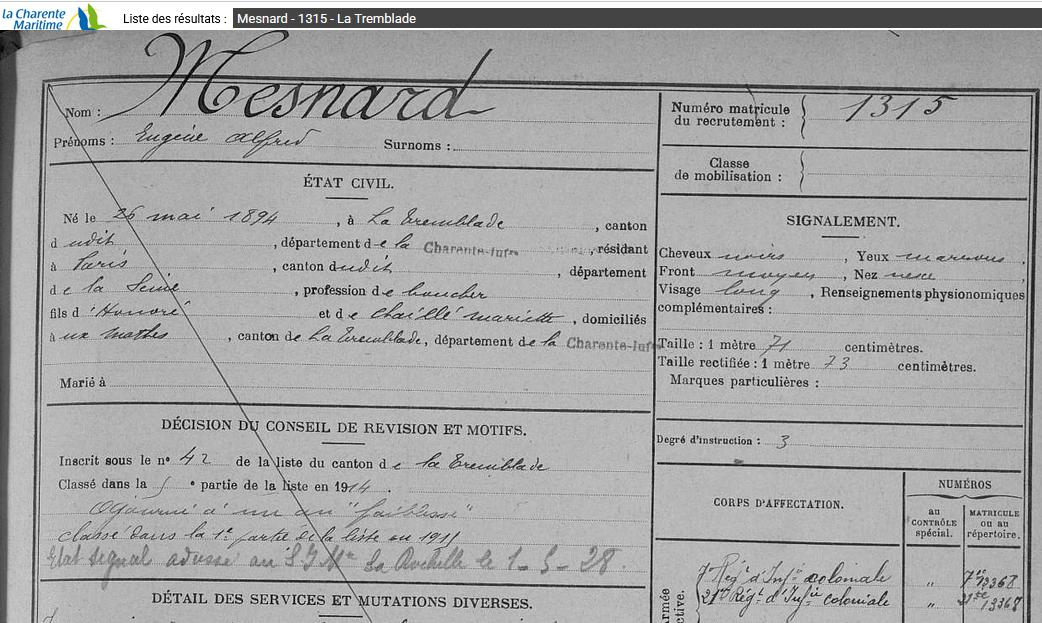 la Charente
Maritime
Liste des résultats : Mesnard - 1315 - La Tremblade
Nom : Mesnard
Prénoms : Eugène Alfred Surnoms :
ÉTAT CIVIL.
Né le 26 mai 1894, à La Tremblade, canton
dudit, département de la Charente-Infre, résidant
à Paris, canton dudit, département
de la Seine, profession de boucher
fils d'Honoré et de Chaillé Mariette, domiciliés
aux Mathes, canton de La Tremblade, département de la Charente-Infre
Marié à
DÉCISION DU CONSEIL DE REVISION ET MOTIFS.
Inscrit sous le n° 42 de la liste du canton de la Tremblade
Classé dans la 5e partie de la liste en 1914.
Ajourné à un an "faiblesse"
classé dans la 1e partie de la liste en 1915
Etat signal adressé au La Rochelle le 1-5-28.
DÉTAIL DES SERVICES ET MUTATIONS DIVERSES.
Numéro matricule
du recrutement : 1315
Classe
de mobilisation :
SIGNALEMENT.
Cheveux noirs, Yeux marrons,
Front moyen, Nez
Visage long, Renseignements physionomiques
complémentaires :
Taille : 1 mètre 71 centimètres.
Taille rectifiée : 1 mètre 73 centimètres.
Marques particulières :
Degré d'instruction : 3
CORPS D'AFFECTATION.
NUMÉROS
au
CONTRÔLE
spécial.
MATRICULE
ou au
répertoire.
Armée
active.
7e Régt d'Infie coloniale " 13367
21e Régt d'Infie coloniale " 13367